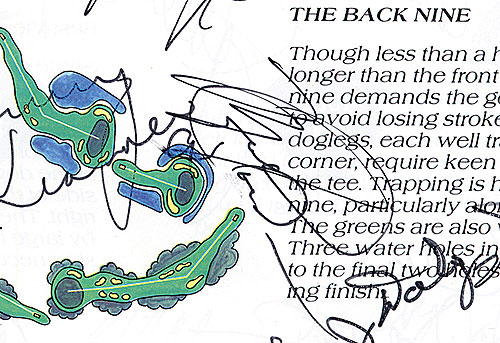 THE BACK NINE
Though less than a h
longer than the front
nine demands the go
to avoid losing stroke
doglegs, each well tr
corner, require keen
the tee. Trapping is h
nine, particularly alon
The greens are also v
Three water holes in
to the final two holes
ing finish.